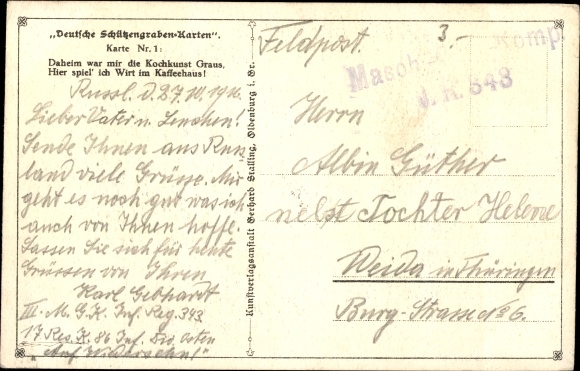 „Deutsche Schützengraben-Karten".
Karte Nr. 1:
Daheim war mir die Kochkunst Graus,
Hier spiel' ich Wirt im Kaffeehaus!
Russl. d. 27.10.1916.
Lieber Vater u. Lenchen!
Sende Ihnen aus Russ
land viele Grüsse. Mir
geht es noch gut was ich
auch von Ihnen hoffe.
Lassen Sie sich für heute
Grüssen von Ihren
Karl Gebhardt
III. M. G. K. Inf. Reg. 343
17 Res. K. 86 Inf. Div. Osten
„Auf Wiedersehn!"
Kunstverlagsanstalt Gerhard Stalling, Oldenburg i. Gr.
Feldpost.
3.-
Masch. Komp.
J. R. 343
Herrn
Albin Güther
nebst Tochter Helene
Weida in Thüringen
Burg-Strasse No 6.